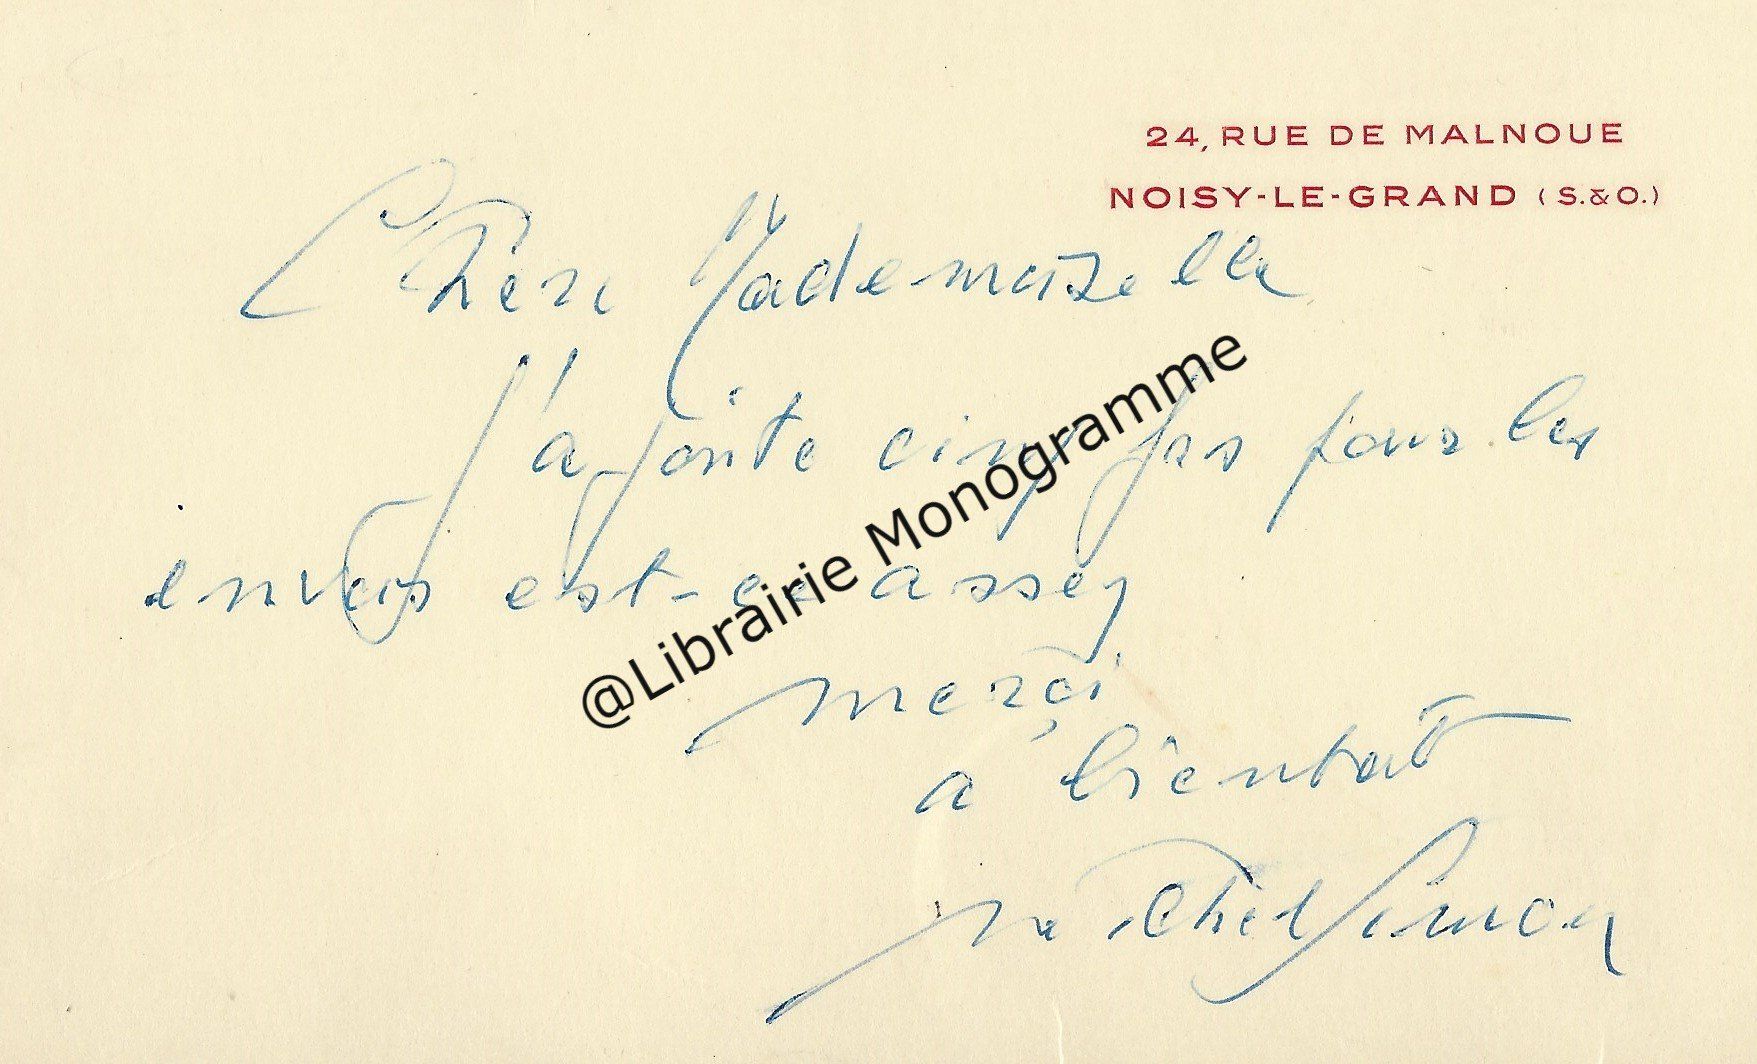 24, RUE DE MALNOUE
NOISY-LE-GRAND (S.&O.)
Chère Mademoiselle
J'ajoute cinq frs pour les
envois est-ce assez
merci
a bientot
Michel Simon
@Librairie Monogramme